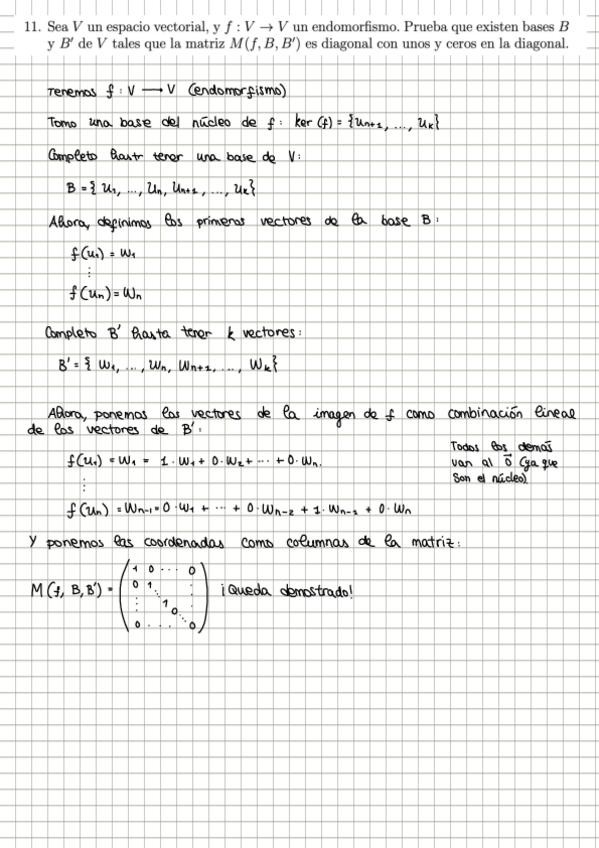 11. Sea V un espacio vectorial, y f : V → V un endomorfismo. Prueba que existen bases B
y B' de V tales que la matriz M(f, B, B') es diagonal con unos y ceros en la diagonal.
Tenemos f : V ⟶ V (endomorfismo)
Tomo una base del núcleo de f: ker (f) = {u_{n+1}, ..., u_k}
Completo hastr tener una base de V:
B = { u_1, ..., u_n, u_{n+1}, ..., u_k}
Ahora, definimos los primeros vectores de la base B:
f(u_1) = w_1
⋮
f(u_n) = w_n
Completo B' hasta tener k vectores:
B' = { w_1, ..., w_n, w_{n+1}, ..., w_k}
Ahora, ponemos los vectores de la imagen de f como combinación lineal
de los vectores de B':
f(u_1) = w_1 = 1 · w_1 + 0 · w_2 + ... + 0 · w_n.
⋮
f(u_n) = w_{n-1} = 0 · w_1 + ... + 0 · w_{n-2} + 1 · w_{n-1} + 0 · w_n
Todos los demás
van al 0⃗ (ya que
son el núcleo)
Y ponemos las coordenadas como columnas de la matriz:
M(f, B, B') = ( 1 0 ... 0
0 1 ⋱ ⋮
⋮ 1 0 ⋱ ⋮
0 ... 0 ) ¡Queda demostrado!